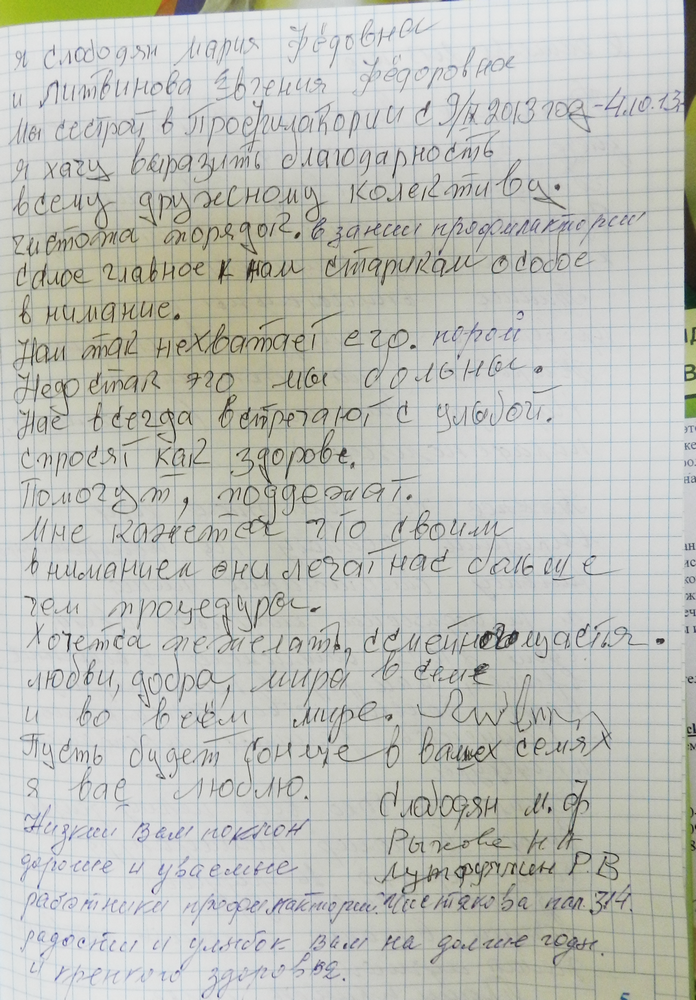 я Слободян Мария Фёдовна
и Литвинова Евгения Фёдоровна
мы сестрой в Профилатории с 9/IX 2013 год - 4.10.13
я хачу выразить благодарность
всему дружсному колективу.
чистота порядок. в зании профилактории
Самое главное к нам старикам особое
внимание.
Нам так нехватает его. порой
Недостак это мы больны.
Нас всегда встречают с улыбой.
спросят как здорове.
Помогут, поддежат.
Мне кажется что своим
вниманием они лечат нас больше
чем процедуры.
Хочется пежелать, семейного щастья.
любви, добра, мира в семе
и во всём мире.
Пусть будет сонце в вашех семях
я вас люблю.
Слободян м. ф
Низкий Вам поклон
Рыжова Н А
дорогие и уваемые
Р. В
работники профилактории. Чистякова пал. 314.
радости и улыбок Вам на долгие годы.
и крепкого здоровье.